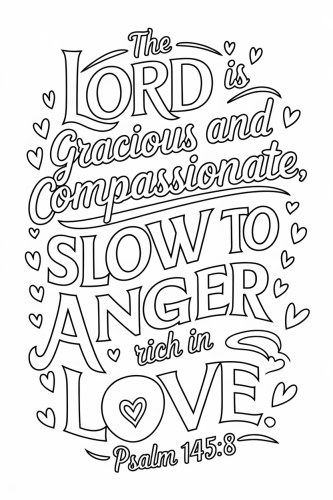 The
LORD is
Gracious and
Compassionate,
SLOW TO
ANGER
rich in
LOVE.
Psalm 145:8